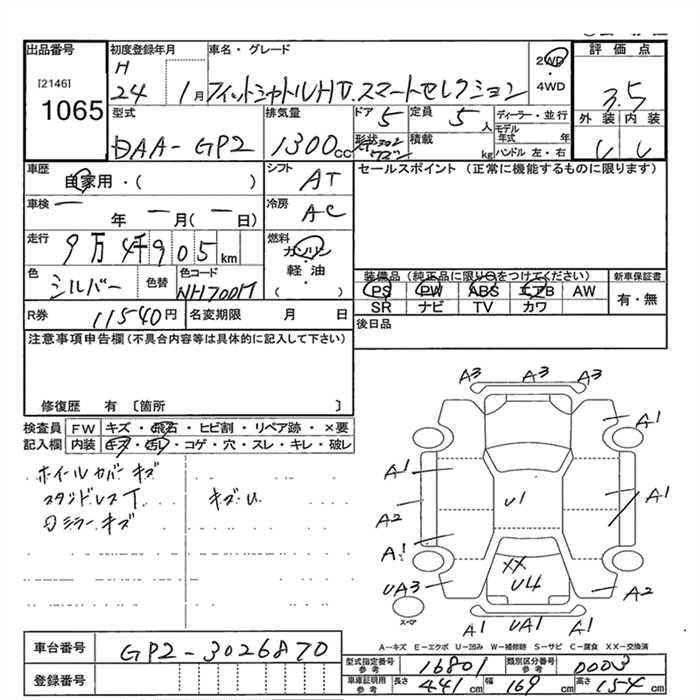 出品番号
[2146]
1065
初度登録年月
H
24 1月
車名・グレード
フィットシャトルHV.スマートセレクション
2WD
・
4WD
評価点
3.5
外装 内装
型式
DAA-GP2
排気量
1300cc
ドア 5
定員 5人
形状
積載 kg
ディーラー・並行
モデル年式 年
ハンドル 左・右
車歴
自家用・( )
シフト
AT
セールスポイント (正常に機能するものに限ります)
車検
ー年ー月(ー日)
冷房
AC
走行
9万4千905km
燃料
ガソリン
軽油
( )
色
シルバー
色替
色コード
NH700M
装備品(純正品に限り○をつけてください)
PS PW ABS エアB AW
SR ナビ TV カワ
新車保証書
有・無
R券 11540円
名変期限 月 日
後日品
注意事項申告欄(不具合内容等は具体的に記入して下さい)
修復歴 有 〔箇所 〕
検査員
記入欄
FW キズ・飛石・ヒビ割・リペア跡・×要
内装 キズ・汚レ・コゲ・穴・スレ・キレ・破レ
ホイールカバーキズ
スタッドレスT.
キズU
ミラーキズ
A3 A3 A3
A1
A1
U1
A1
A2
A1
XX
U4
UA3
A2
A1 UA1 A1
スペア
A-キズ E-エクボ U-凹み W-補修跡 S-サビ C-腐食 XX-交換済
車台番号 GP2-3026870
登録番号
型式指定番号
参考
16801
類別区分番号
参考
0003
車庫証明用
参考
長さ 441cm
幅 169cm
高さ 154cm